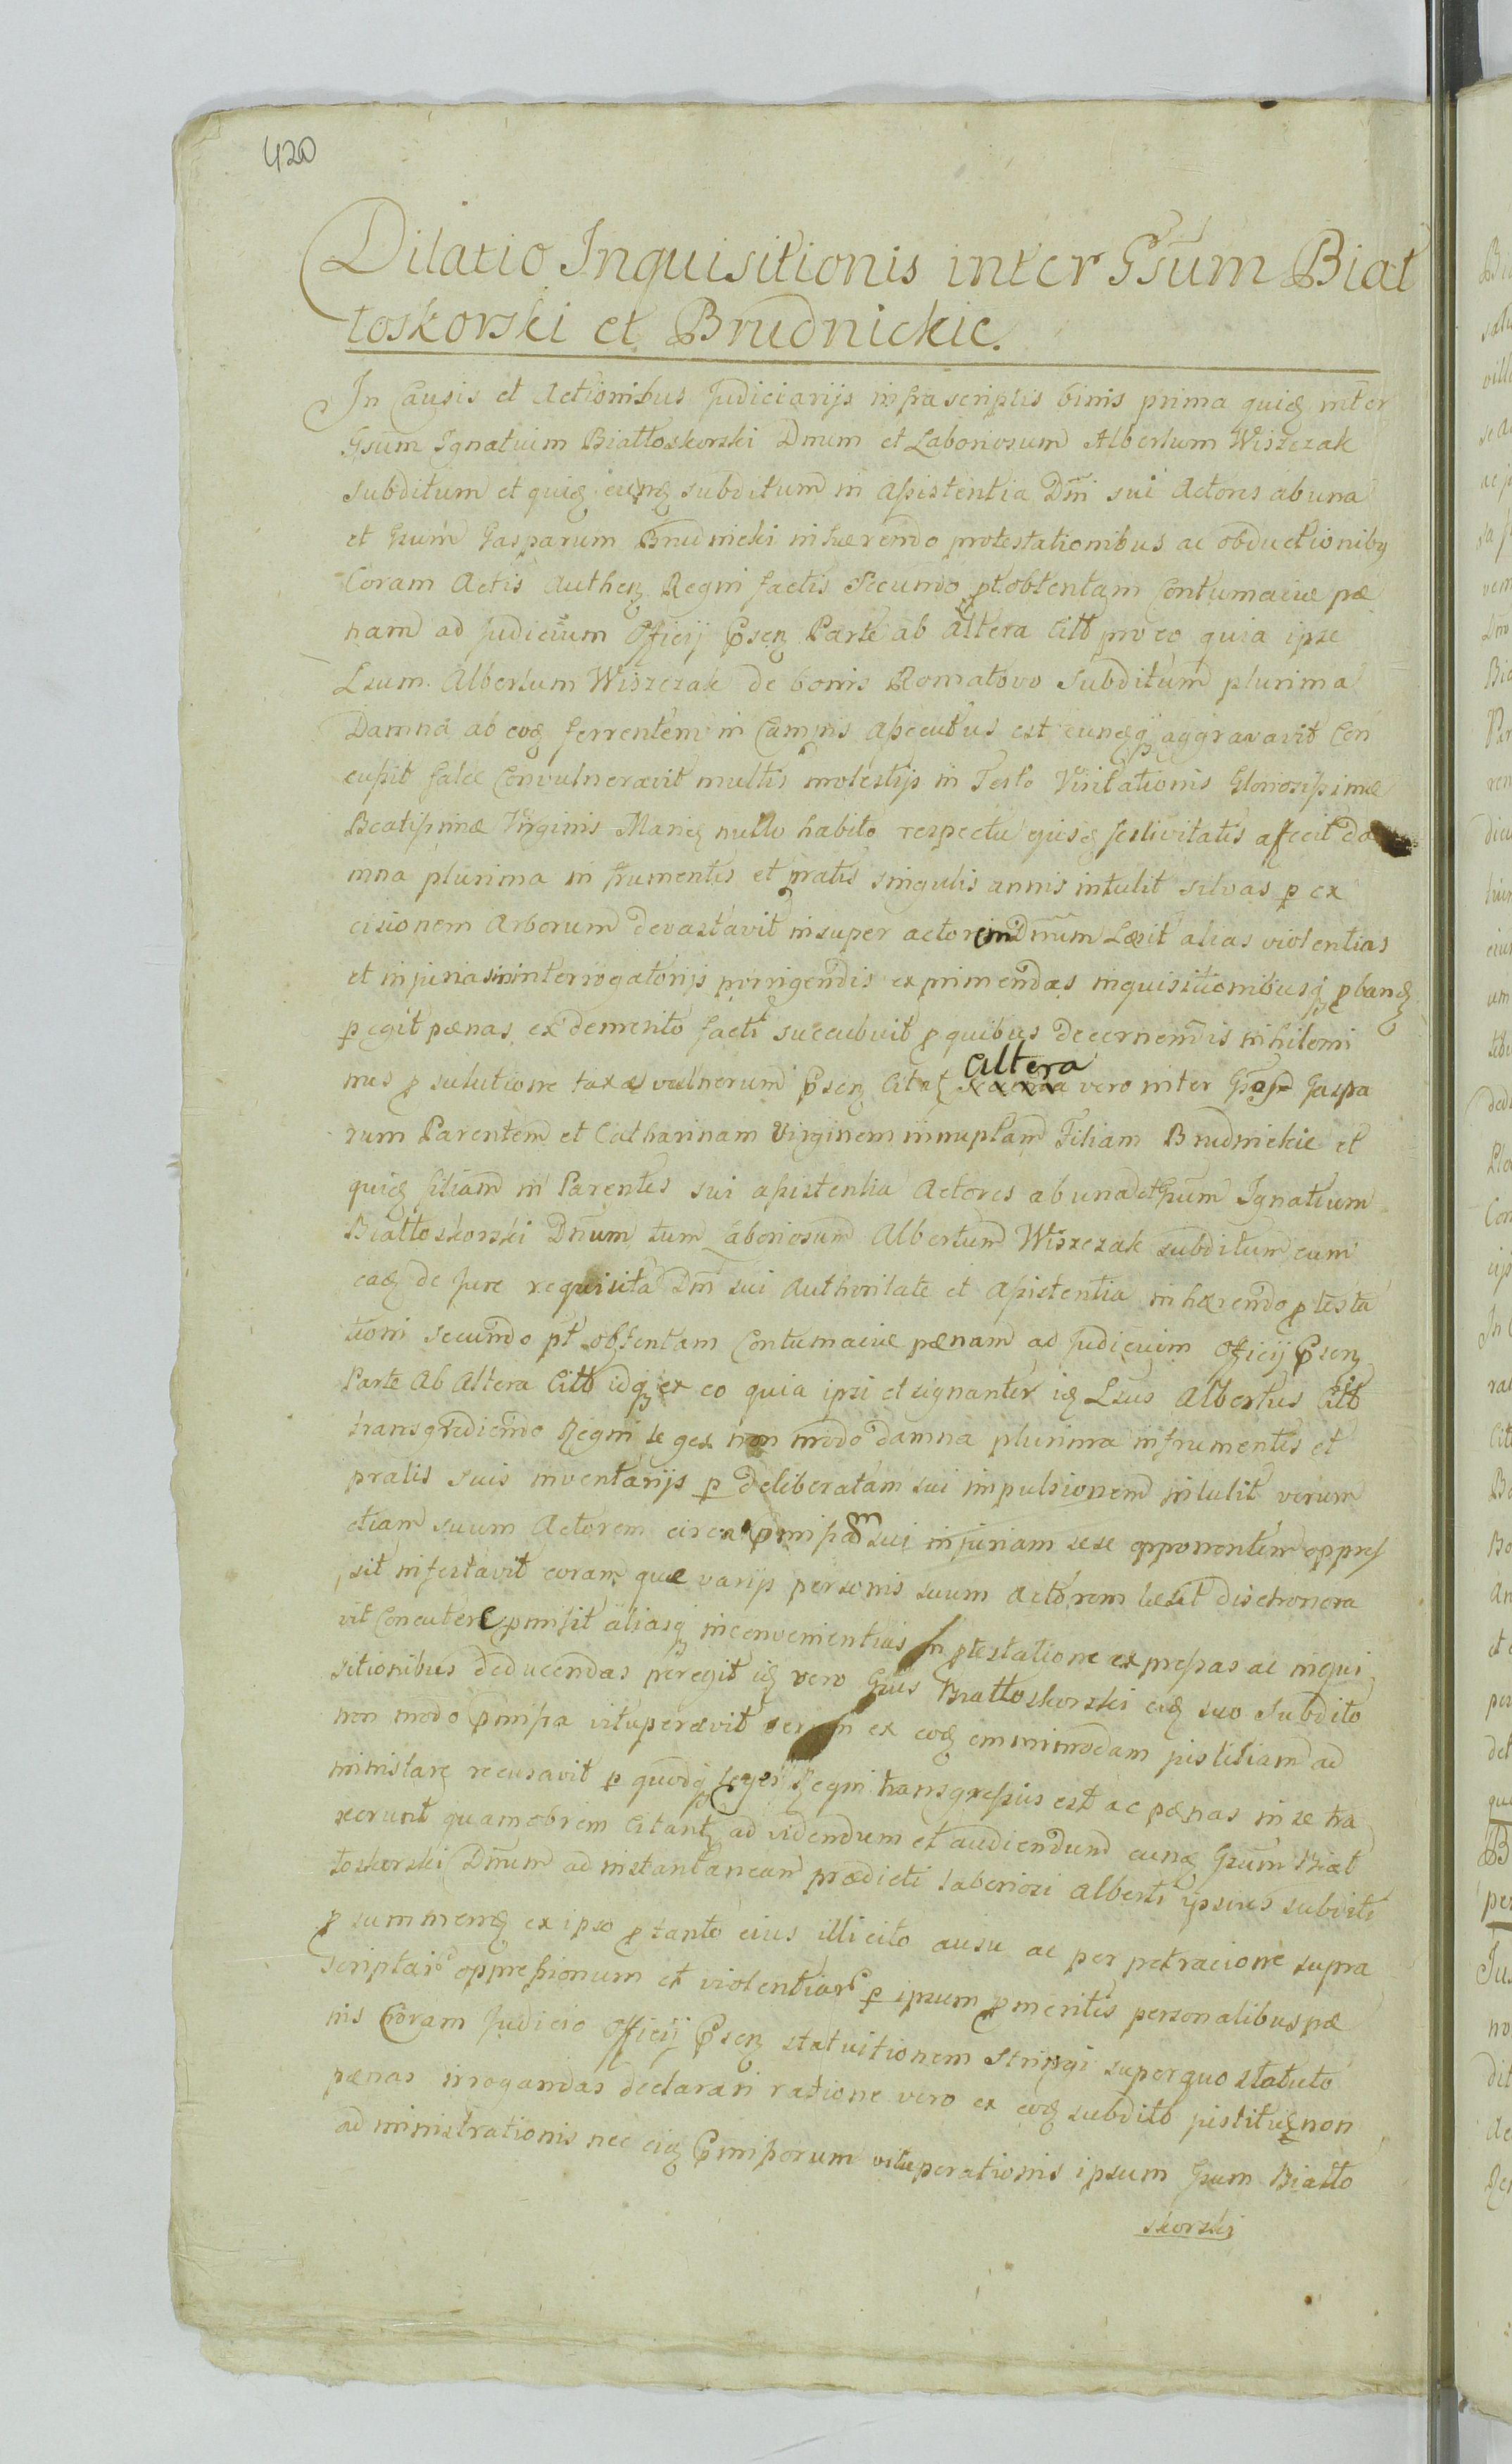 420
Dilatio Inquisitionis inter Gsum Biał
łoskorski et Brudnickie.
In Causis et Actionibus Judiciarijs infrascriptis binis prima quidę inter
Gsum Ignatium Białłoskorski Dnum et Laboriosum Albertum Wiszczak
subditum et quidę eundę subditum in assistentia Dni sui Actores ab una
et Gsum Gasparum Brudnicki inhærendo protestationibus ac obductionibꝯ
Coram Actis Authenz Regni factis Secundo pt obtentam Contumaciæ pæ
nam ad Judicium Officij Psenz Parte ab altera Citt pro eo quia ipse
Lsum. Albertum Wiszczak de bonis Romatovo Subditum plurima
Damna ab eodę ferrentem in Campis assecutus est eundęq aggravavit Con
cussit falce Convulneravit multis molestijs in Festo Visitationis Gloriosissimæ
Beatissimæ Virginis Mariæ nullo habito respectu ejusdę festivitatis affecit da
mna plurima in frumentis et pratis singulis annis intulit silvas p ex
cisionem Arborum devastavit insuper actorem Dnum Læsit alias violentias
et injurias in interrogatorijs porrigendis exprimendas inquisitionibusq pbandę
pegit pænas ex demerito facti succubuit p quibus decernendis nihilomi
nus p solutione taxæ vulnerum Psenz Citatz altera vero inter Gsos Gaspa
rum Parentem et Catharinam Virginem innuptam Filiam Brudnickie et
quidę filiam in Parentis sui assistentia Actores ab una et Gsum Ignatium
Białłoskorski Dnum tum Laboriosum Albertum Wiszczak subditum cum
eadę de jure requisita Dni sui Authoritate et assistentia inhærendo ptesta
tioni secundo pt obtentam Contumaciæ pænam ad Judicium Officij Psenz
Parte Ab Altera Citt idq ex eo quia ipsi et signanter idę Lsus Albertus Citt
transgrediendo Regni leges non modo damna plurima in frumentis et
pratis suis inventarijs p deliberatam sui impulsionem intulit verum
etiam suum Actorem circa pmissam sui injuriam sese opponentem oppres
sit infestavit coram quæ varijs personis suum Actorem læsit dischonora
vit Concutere pmisit aliasq inconvenientias in ptestatione expressas ac inqui
sitionibus deducendas peregit idę vero Gsus Białłoskorski eidę suo subdito
non modo pmissa vituperavit verum ex eodę omnimodam justitiam ad
ministrare recusavit p quodq leges Regni transgressus est ac pænas in se tra
xerunt quamobrem Citantz ad videndum et audiendum eundę Gsum Biał
łoskorski Dnum ad instantaneam prædicti laboriosi Alberti ipsius subditi
p summendę ex ipso p tanto eius illicito ausu ac perpetracione supra
scriptar oppressionum et violentiar p ipsum pmeritis personalibus pæ
nis Coram Judicio Officij Psenz statuitionem stringi super quo statuto
pænas irrogandas declarari ratione vero ex eodę subdito justitiæ non
administrationis nec eidę Pmissorum vituperationis ipsum Gsum Białło
skorski